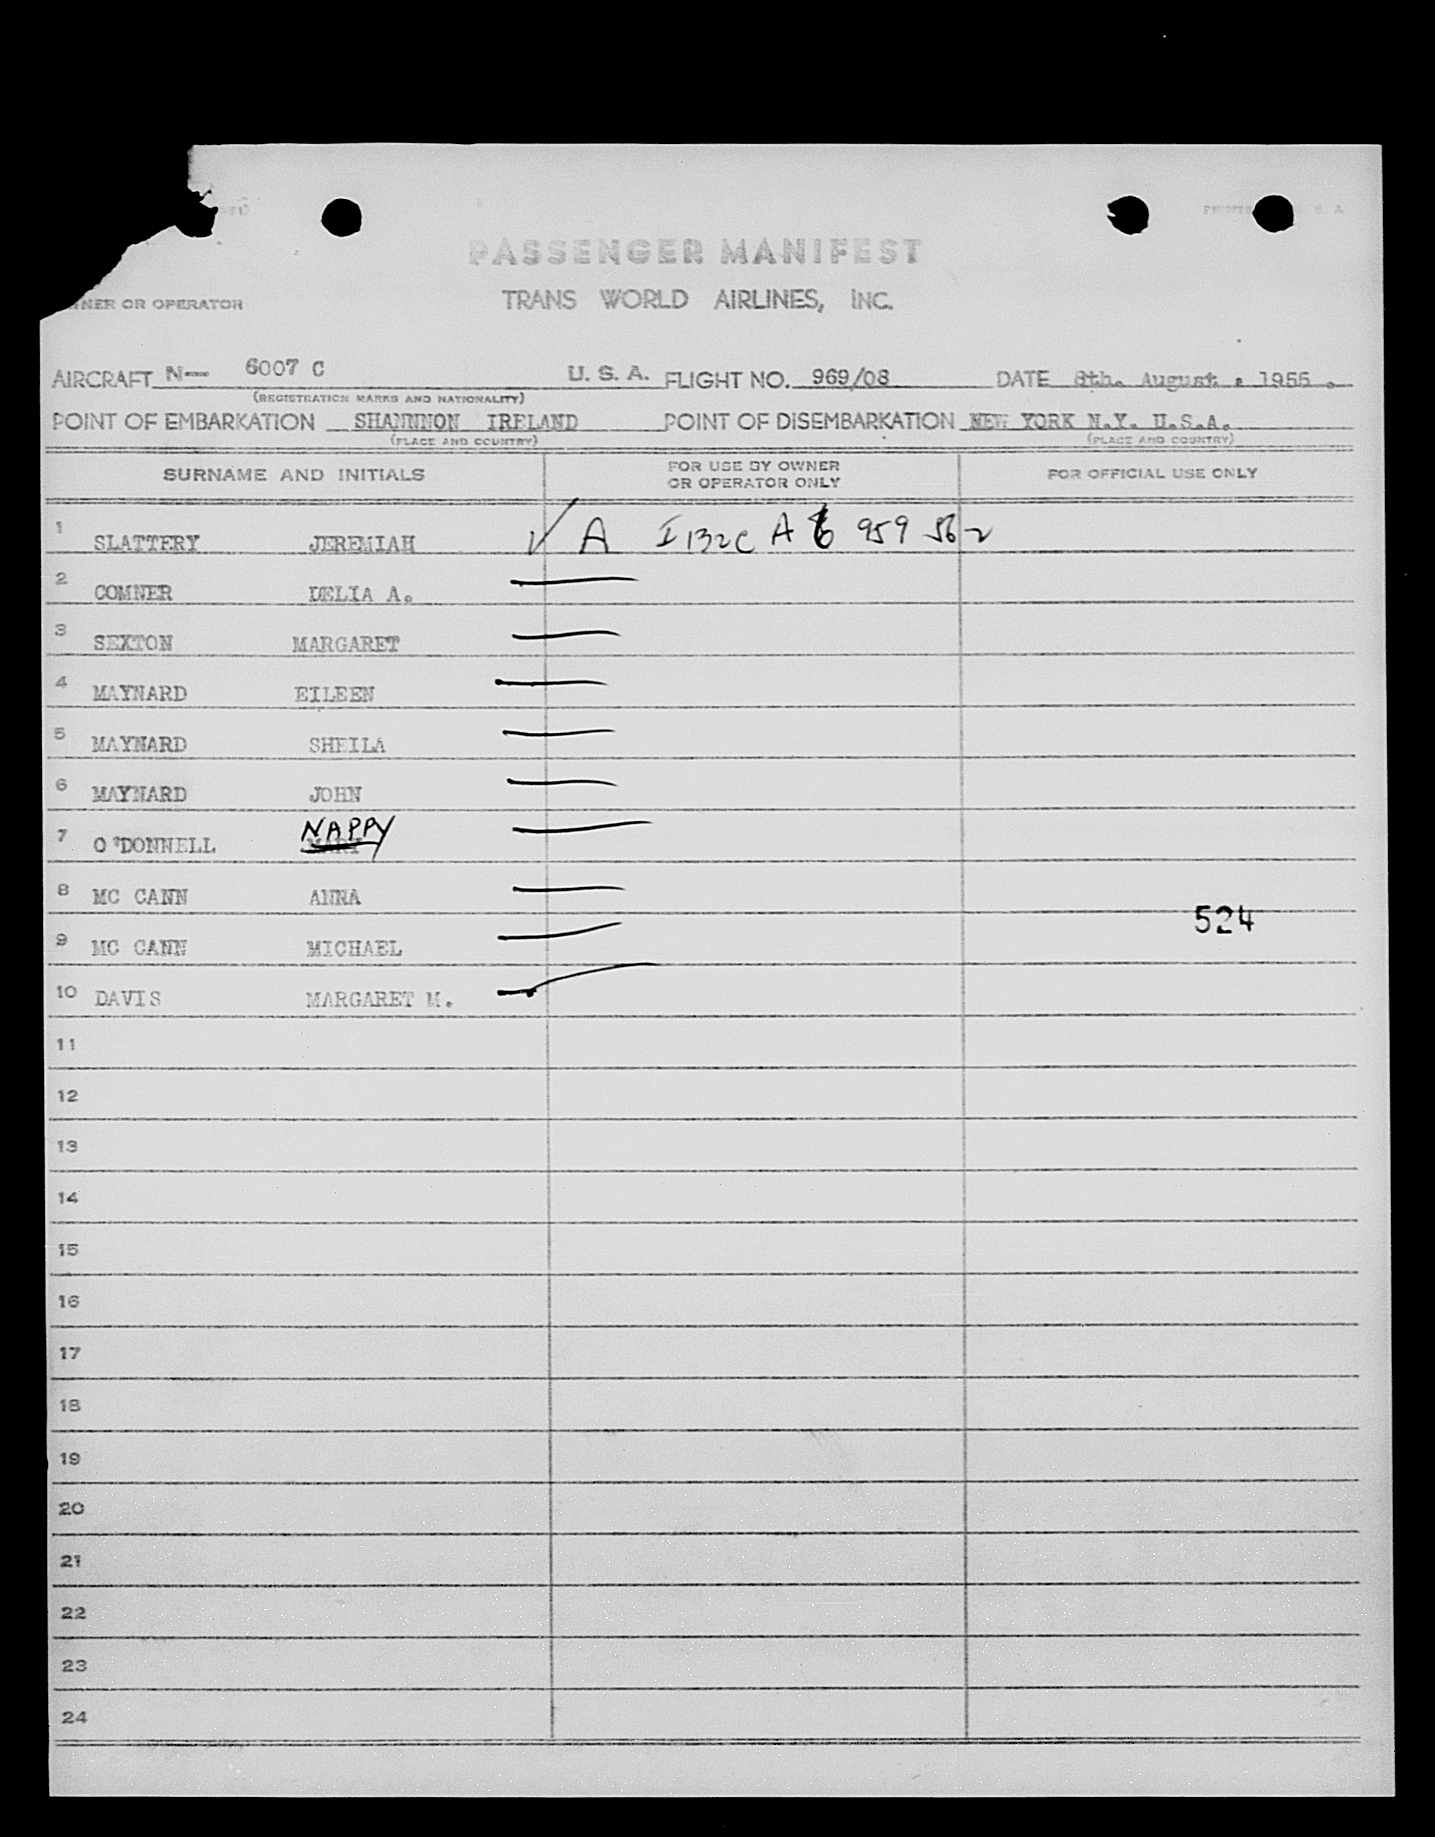 PASSENGER MANIFEST
NER OR OPERATOR
TRANS WORLD AIRLINES, INC.
AIRCRAFT N— 6007 C U. S. A. FLIGHT NO. 969/08 DATE 8th. August . 1955 .
(REGISTRATION MARKS AND NATIONALITY)
POINT OF EMBARKATION SHANNNON IRELAND POINT OF DISEMBARKATION NEW YORK N.Y. U.S.A.
(PLACE AND COUNTRY) (PLACE AND COUNTRY)
SURNAME AND INITIALS FOR USE BY OWNER OR OPERATOR ONLY FOR OFFICIAL USE ONLY
1 SLATTERY JEREMIAH A I 132C A 6 959 562
2 COMNER DELIA A.
3 SEXTON MARGARET
4 MAYNARD EILEEN
5 MAYNARD SHEILA
6 MAYNARD JOHN
7 O'DONNELL MARY NAPPY
8 MC CANN ANNA
524
9 MC CANN MICHAEL
10 DAVIS MARGARET M.
11
12
13
14
15
16
17
18
19
20
21
22
23
24